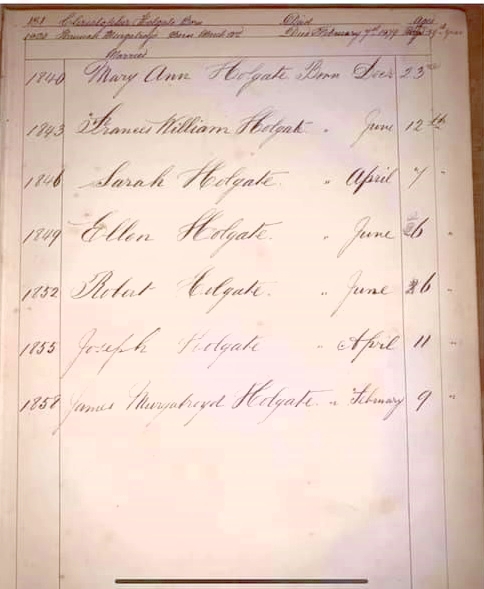 Christopher Holgate Born Died Aged
Hannah Murgatroyd Born March Died February 7th
Married
1840 Mary Ann Holgate Born Decr 23rd
1843 Frances William Holgate " June 12th
1846 Sarah Holgate. " April 7 "
1849 Ellen Holgate. " June 6 "
1852 Robert Holgate. " June 26 "
1855 Joseph Holgate " April 11 "
1858 James Murgatroyd Holgate. " February 9 "